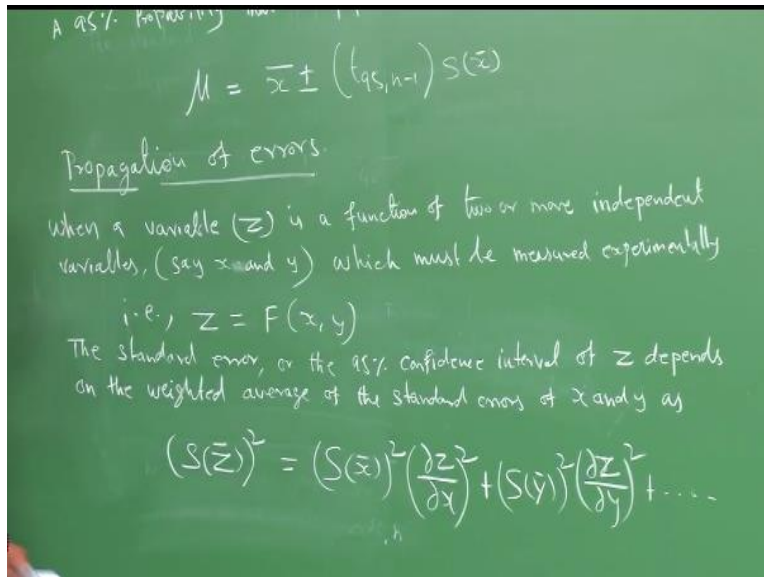 A 95% 
μ = x̄ ± (t95,n-1) S(x̄)
Propagation of errors.
When a variable (z) is a function of two or more independent
variables, (say x and y) which must be measured experimentally
i.e., z = F(x, y)
The standard error, or the 95% confidence interval of z depends
on the weighted average of the standard errors of x and y as
(S(z̄))² = (S(x̄))² (∂z/∂x)² + (S(ȳ))² (∂z/∂y)² + ....